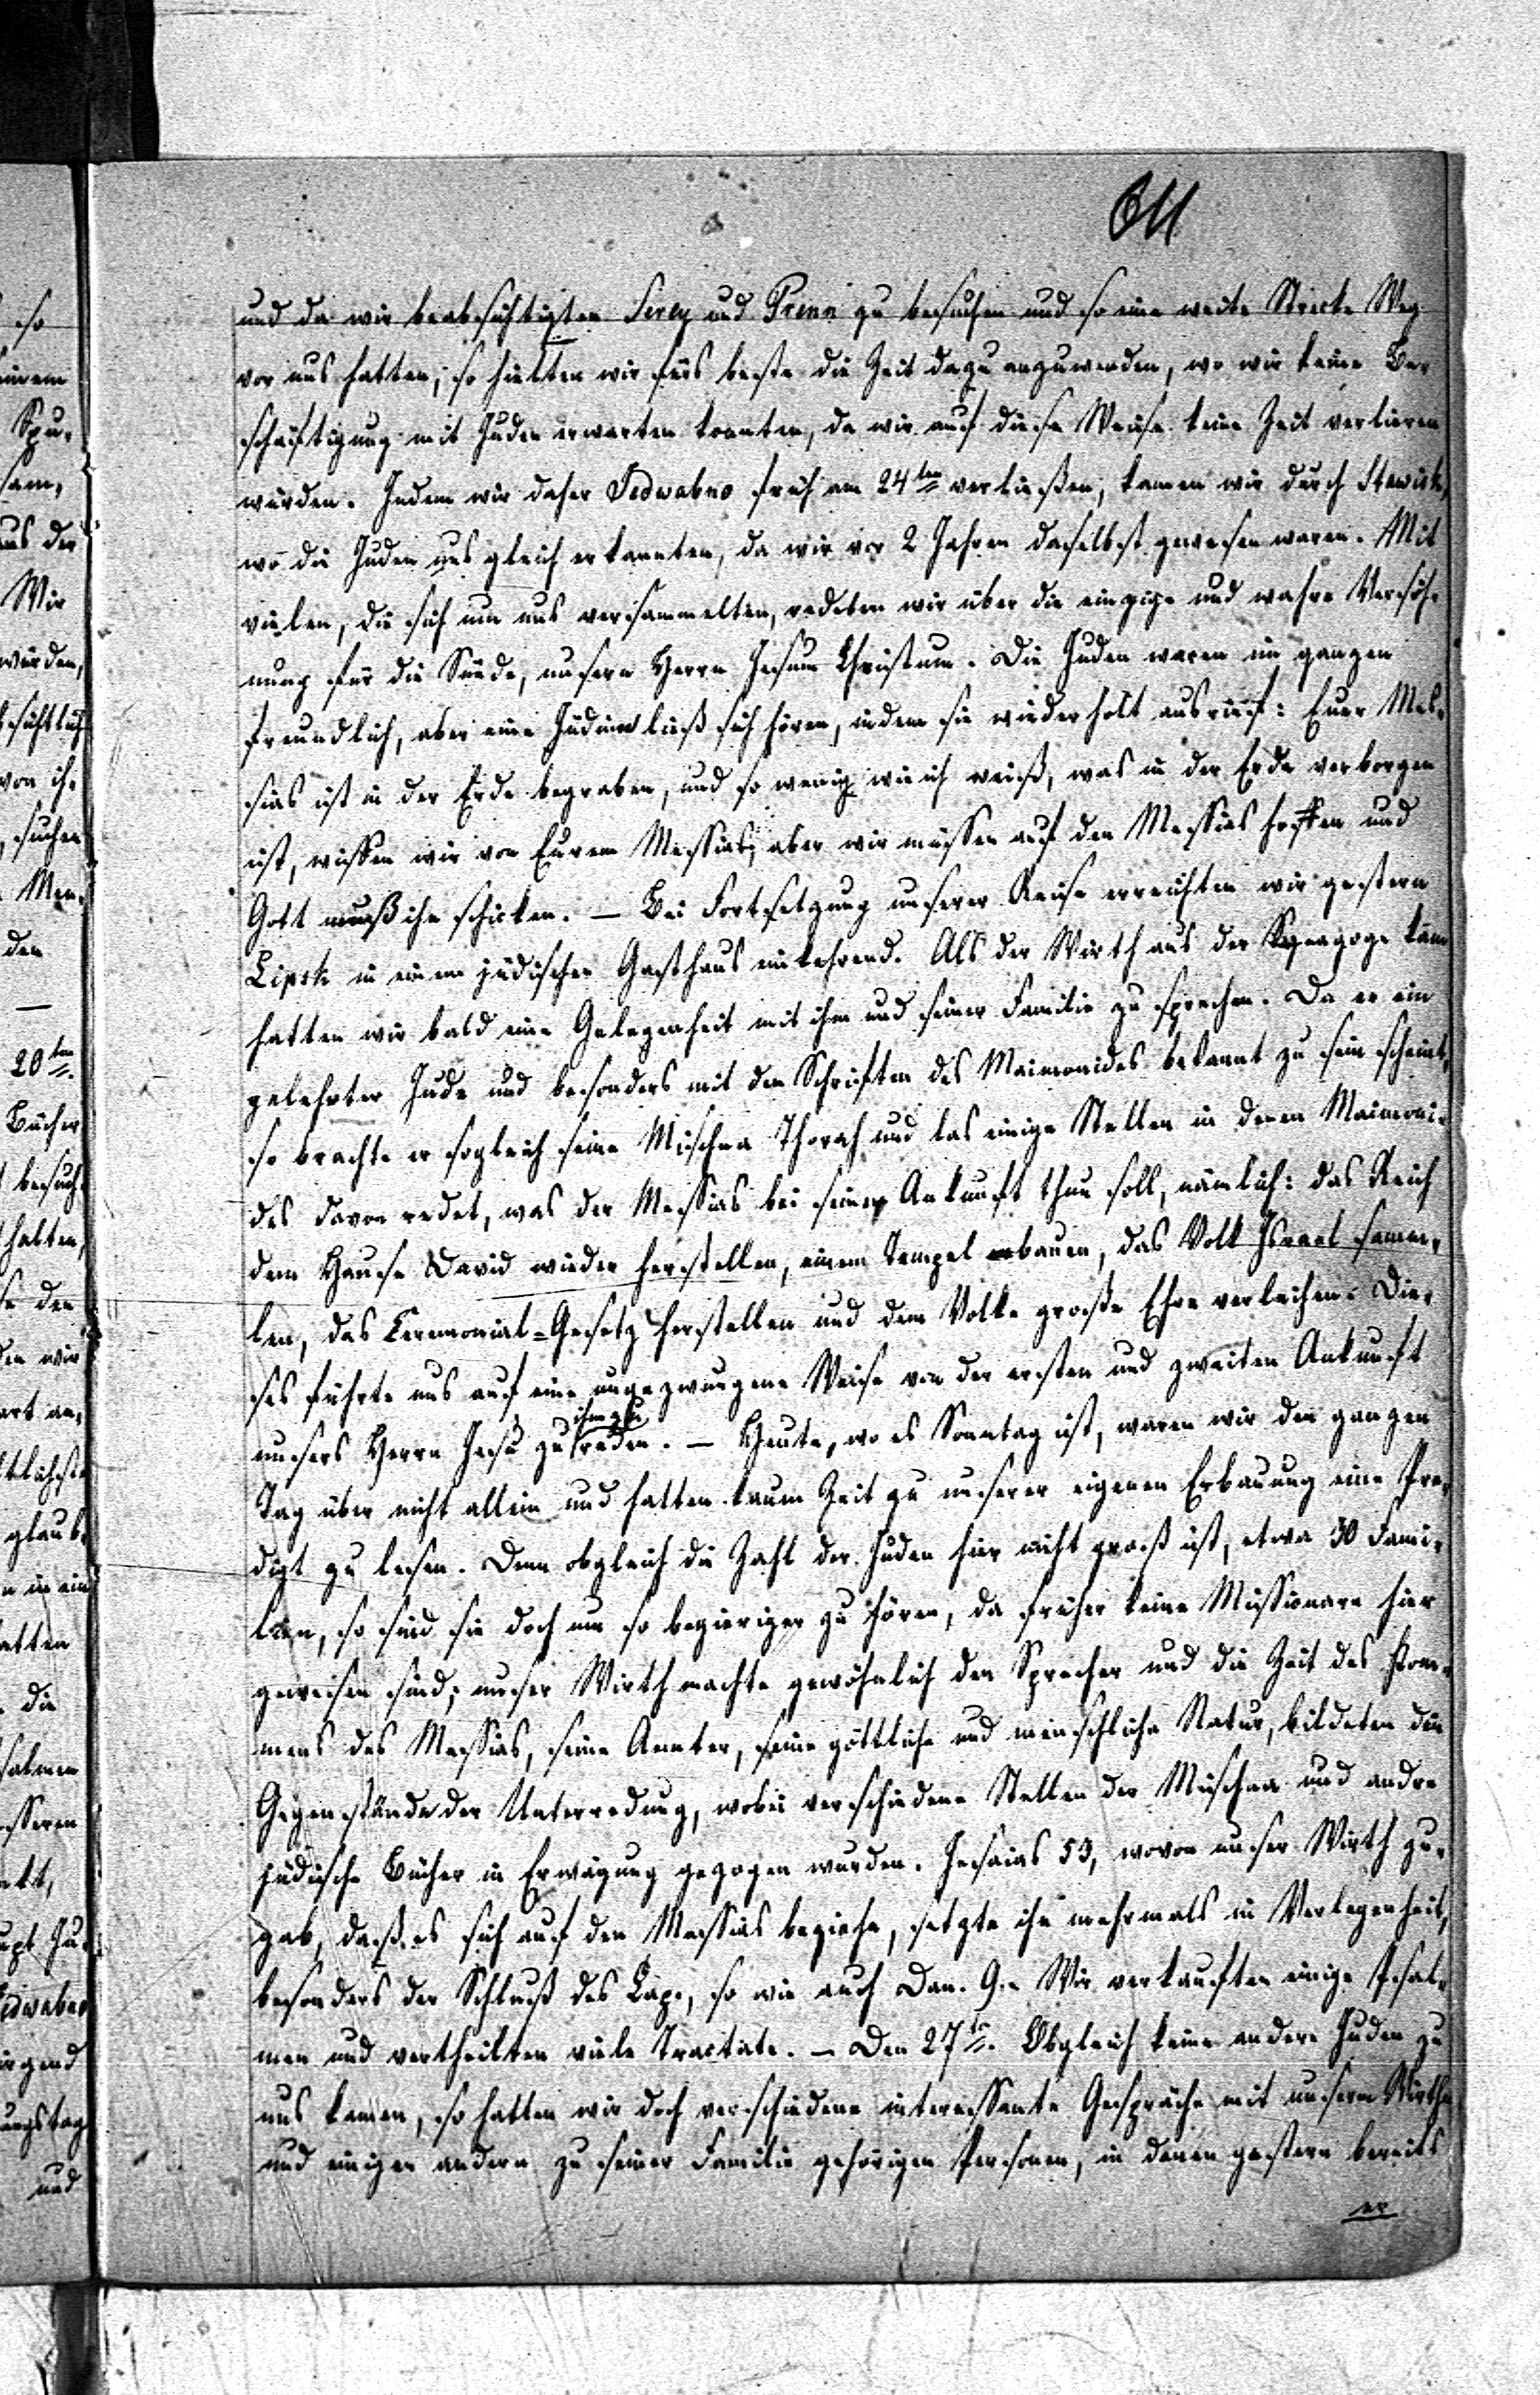 so
einem
Spu-
sam,
aus der
Wir
würden,
von ih-
suchen
Men-
den
—
20ten.
Bücher
besuch-
halten,
den
den wir
art an,
glaub-
n in ein
atten
die
salmen
esseren
kt,
upt Ju-
edwabno
irgend
ungstag
und
611
und da wir beabsichtigten Serey und Prenn zu besuchen und so eine weite Strecke Weg
vor uns hatten, so hielten wir fürs beste die Zeit dazu anzuwenden, wo wir keine Be-
schäftigung mit Juden erwarten konnten, da wir auf diese Weise keine Zeit verlieren
würden. Indem wir daher Jedwabno früh am 24ten verließen, kamen wir durch Stawisk,
wo die Juden uns gleich erkannten, da wir vor 2 Jahren daselbst gewesen waren. Mit
vielen, die sich um uns versammelten, redeten wir über die einzige und wahre Versöh-
nung für die Sünde, unsern Herrn Jesum Christum. Die Juden waren im ganzen
freundlich, aber eine Jüdinn ließ sich hören, indem sie wiederholt ausrief: Euer Mes-
sias ist in der Erde begraben, und so wenig wie ich weiß, was in der Erde verborgen
ist, wissen wir von Eurem Messias, aber wir müssen auf den Messias hoffen und
Gott muß ihn schicken. — Bei Fortsetzung unserer Reise erreichten wir gestern
Lipsk in einem jüdischen Gasthaus einkehrend. Als der Wirth aus der Synagoge kam
hatten wir bald eine Gelegenheit mit ihm und seiner Familie zu sprechen. Da er ein
gelehrter Jude und besonders mit den Schriften des Maimonides bekannt zu sein scheint,
so brachte er sogleich seine Mischna Thorah und las einige Stellen in denen Maimoni-
des davon redet, was der Messias bei seiner Ankunft thun soll, nämlich: das Reich
dem Hause David wieder herstellen, einem Tempel erbauen, das Volk Israel samm-
len, das Ceremonial-Gesetz herstellen und dem Volke große Ehre verleihen. Die-
ses führte uns auf eine ungezwungene Weise von der ersten und zweiten Ankunft
unsers Herrn Jesu zu ihm zu reden. — Heute, wo es Sonntag ist, waren wir den ganzen
Tag über nicht allein und hatten kaum Zeit zu unserer eigenen Erbauung eine Pre-
digt zu lesen. Denn obgleich die Zahl der Juden hier nicht groß ist, etwa 30 Fami-
lien, so sind sie doch um so begieriger zu hören, da früher keine Missionare hier
gewesen sind; unser Wirth machte gewöhnlich den Sprecher und die Zeit des Kom-
mens des Messias, seine Aemter, seine göttliche und menschliche Natur, bildeten die
Gegenstände der Unterredung, wobei verschiedene Stellen der Mischna und andre
jüdische Bücher in Erwägung gezogen wurden. Jesaias 53, wovon unser Wirth zu-
gab, daß es sich auf den Messias beziehe, setzte ihn mehrmals in Verlegenheit,
besonders der Schluß des Cap., so wie auch Dan. 9. Wir verkauften einige Psal-
men und vertheilten viele Tractate. — Den 27ten. Obgleich keine andere Juden zu
uns kamen, so hatten wir doch verschiedene interessante Gespräche mit unserm Wirthe
und einigen andern zu seiner Familie gehörigen Personen, in denen gestern bereits
er